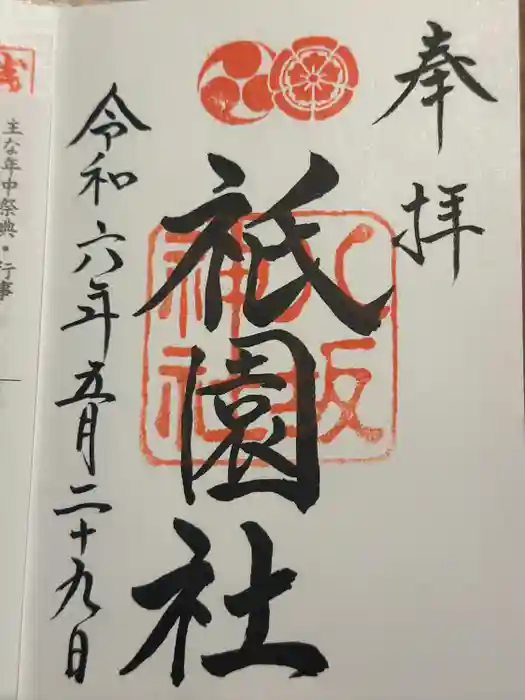 奉拝
八坂
神社
祇園社
令和六年五月二十九日
主な年中祭典・行事